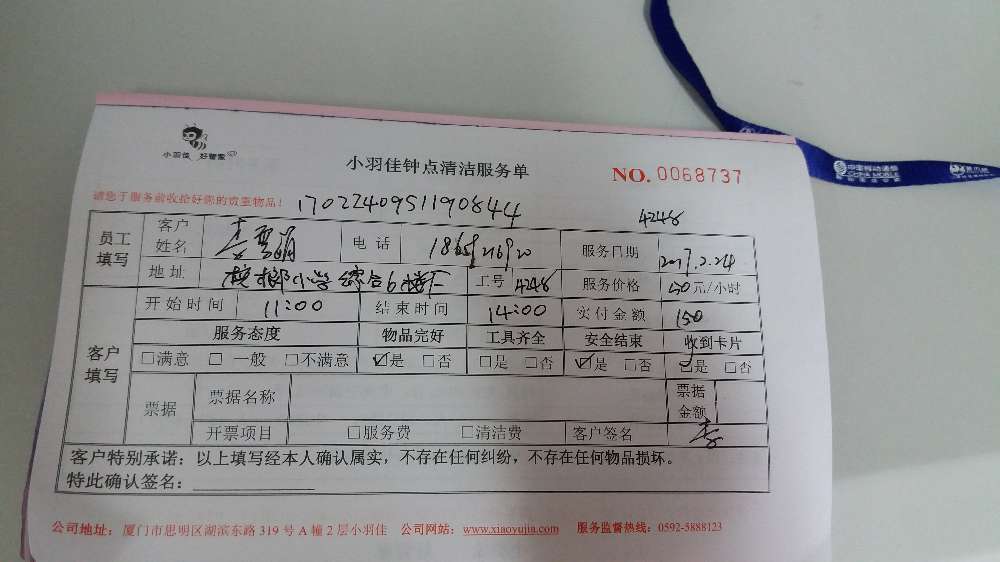 小羽佳 好管家
小羽佳钟点清洁服务单
NO. 0068737
请您于服务前收拾好您的贵重物品!
1702240951190844
4248
员工填写 客户姓名 电话 服务日期 2017.2.24
地址 小学综合6楼 工号 4248 服务价格 50元/小时
开始时间 11:00 结束时间 14:00 实付金额 150
客户填写 服务态度 物品完好 工具齐全 安全结束 收到卡片
□满意 □一般 □不满意 ☑是 □否 □是 □否 ☑是 □否 ☑是 □否
票据 票据名称 票据金额
开票项目 □服务费 □清洁费 客户签名 李
客户特别承诺：以上填写经本人确认属实，不存在任何纠纷，不存在任何物品损坏。
特此确认签名：
公司地址：厦门市思明区湖滨东路 319 号 A 幢 2 层小羽佳 公司网站：www.xiaoyujia.com 服务监督热线：0592-5888123
中国移动通信
CHINA MOBILE